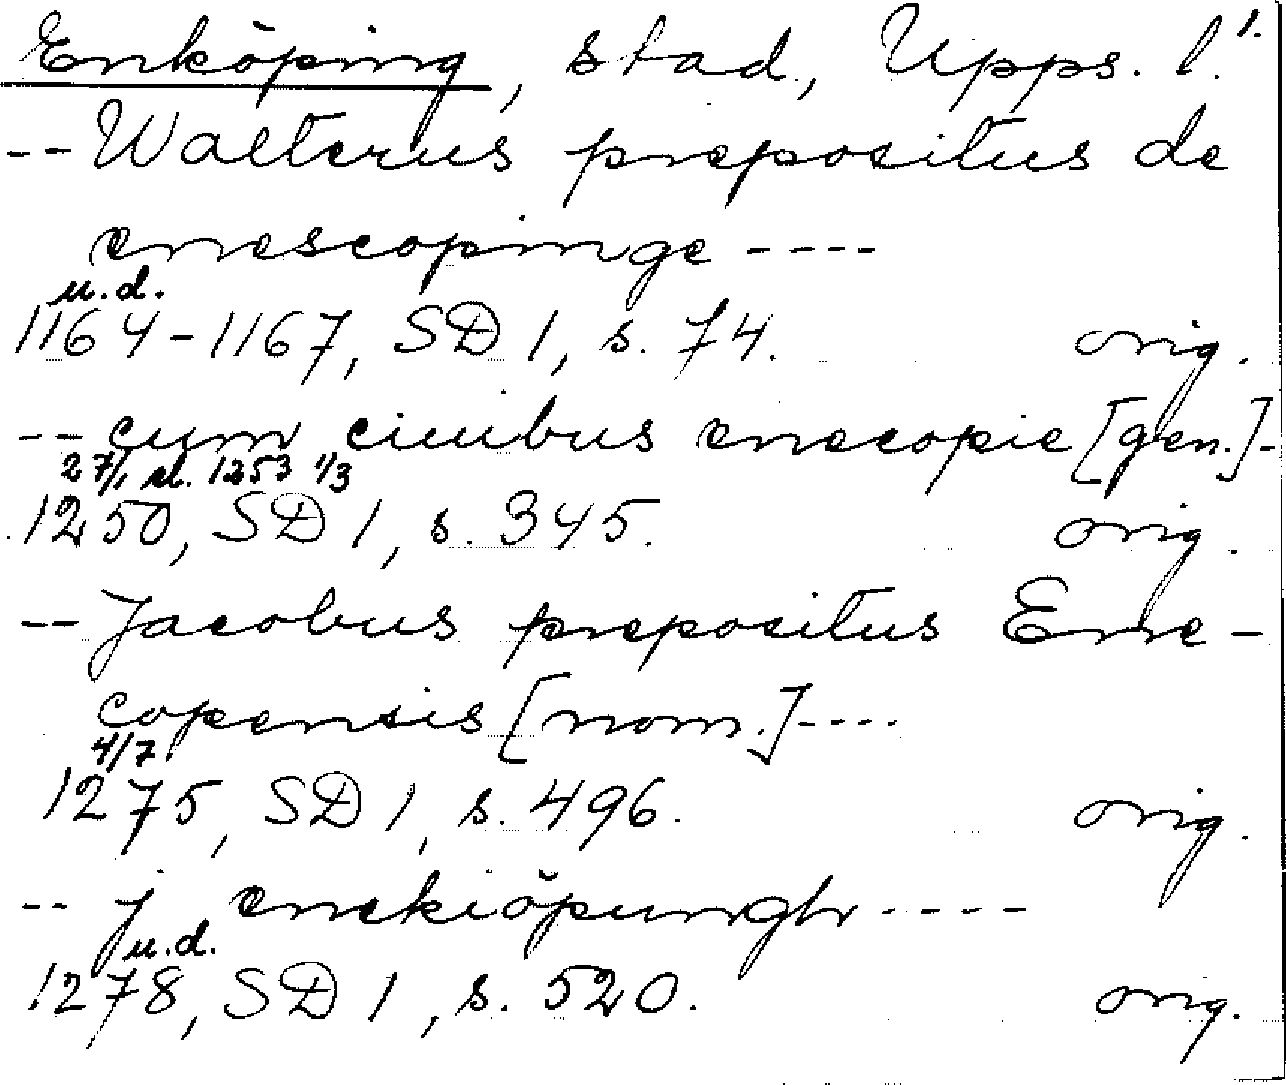 Enköping, stad, Upps. l. 1.
-- Walterus prepositus de
enescopinge ----
u.d.
1164-1167, SD 1, s. 74. orig.
-- cum ciuibus enecopie [gen.]-
27/1 el. 1253 1/3
1250, SD 1, s. 345. orig.
-- Jacobus prepositus Ene-
copensis [nom.]----
4/7
1275, SD 1, s. 496. orig.
-- j enekiöpungh ----
u.d.
1278, SD 1, s. 520. orig.